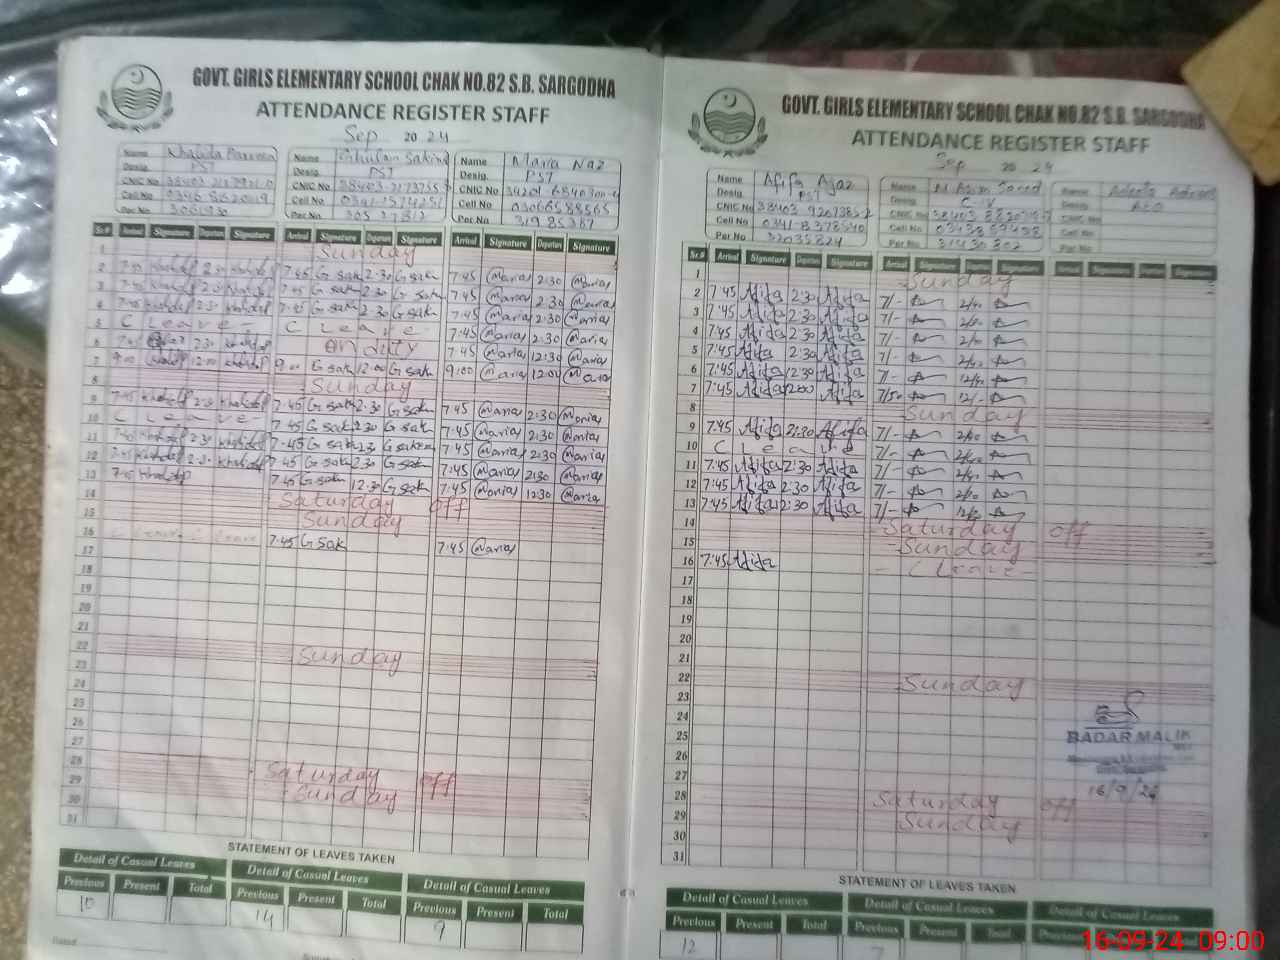 GOVT. GIRLS ELEMENTARY SCHOOL CHAK NO.82 S.B. SARGODHA
ATTENDANCE REGISTER STAFF
Sep 2024
Name Khalida Parveen
Desig. PST
CNIC No
Cell No
Per No
Name Ghulam Sakina
Desig. PST
CNIC No
Cell No
Per No
Name Maria Naz
Desig. PST
CNIC No
Cell No 03066588565
Per No
Sr.# Arrival Signature Departure Signature Arrival Signature Departure Signature Arrival Signature Departure Signature
1 Sunday
2 7:45 Khalida 2:30 Khalida 7:45 G sak 2:30 G sak 7:45 Maria 2:30 Maria
3 7:45 Khalida 2:30 Khalida 7:45 G sak 2:30 G sak 7:45 Maria 2:30 Maria
4 7:45 Khalida 2:30 Khalida 7:45 G sak 2:30 G sak 7:45 Maria 2:30 Maria
5 C Leave- C Leave- 7:45 Maria 2:30 Maria
6 7:45 12:30 Khalida on duty 7:45 Maria 12:30 Maria
7 9:00 Khalida 12:00 Khalida 9:00 G sak 12:00 G sak 9:00 Maria 12:00 Maria
8 Sunday
9 7:45 Khalida 2:30 Khalida 7:45 G sak 2:30 G sak 7:45 Maria 2:30 Maria
10 C Leave 7:45 G sak 2:30 G sak 7:45 Maria 2:30 Maria
11 7:45 Khalida 2:30 Khalida 7:45 G sak 2:30 G sak 7:45 Maria 2:30 Maria
12 7:45 Khalida 2:30 Khalida 7:45 G sak 2:30 G sak 7:45 Maria 2:30 Maria
13 7:45 Khalida 7:45 G sak 12:30 G sak 7:45 Maria 12:30 Maria
14 Saturday off
15 Sunday
16 C leave C leave 7:45 G sak 7:45 Maria
17
18
19
20
21
22 Sunday
23
24
25
26
27
28 Saturday off
29 Sunday
30
31
STATEMENT OF LEAVES TAKEN
Detail of Casual Leaves Detail of Casual Leaves Detail of Casual Leaves
Previous Present Total Previous Present Total Previous Present Total
10 14 9
Dated
GOVT. GIRLS ELEMENTARY SCHOOL CHAK NO.82 S.B. SARGODHA
ATTENDANCE REGISTER STAFF
Sep 2024
Name Afifa Ajaz
Desig. PST
CNIC No
Cell No 0341-8378540
Per No 32035824
Name M Azim Saeed
Desig. C-IV
CNIC No
Cell No
Per No 31430802
Name
Desig.
CNIC No
Cell No
Per No
Sr.# Arrival Signature Departure Signature Arrival Signature Departure Signature Arrival Signature Departure Signature
1 Sunday
2 7:45 Afifa 2:30 Afifa 7/-
3 7:45 Afifa 2:30 Afifa 7/-
4 7:45 Afifa 2:30 Afifa 7/-
5 7:45 Afifa 2:30 Afifa 7/-
6 7:45 Afifa 12:30 Afifa 7/-
7 7:45 Afifa 12:00 Afifa
8 Sunday
9 7:45 Afifa 2:30 Afifa 7/-
10 C leave 7/-
11 7:45 Afifa 2:30 Afifa 7/-
12 7:45 Afifa 2:30 Afifa 7/-
13 7:45 Afifa 12:30 Afifa 7/-
14 Saturday off
15 Sunday
16 7:45 Afifa - C Leave-
17
18
19
20
21
22 Sunday
23
24
25
26
27
28 Saturday off
29 Sunday
30
31
BADAR MALIK
16/9/24
STATEMENT OF LEAVES TAKEN
Detail of Casual Leaves Detail of Casual Leaves Detail of Casual Leaves
Previous Present Total Previous Present Total Previous
12 7
16-09-24 09:00